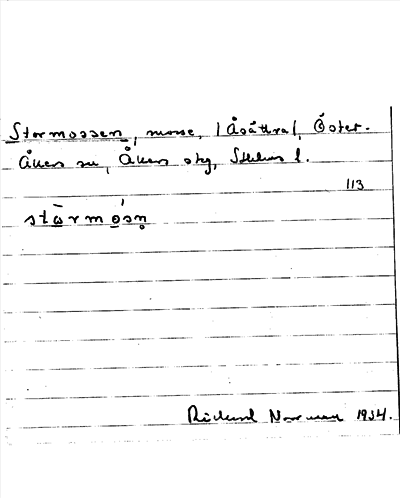 Stormossen, mosse, (Åsättra), Öster-
Åkers sn, Åkers skg, Sthlms l.
113
stɷ̄rmósn̥
1934.